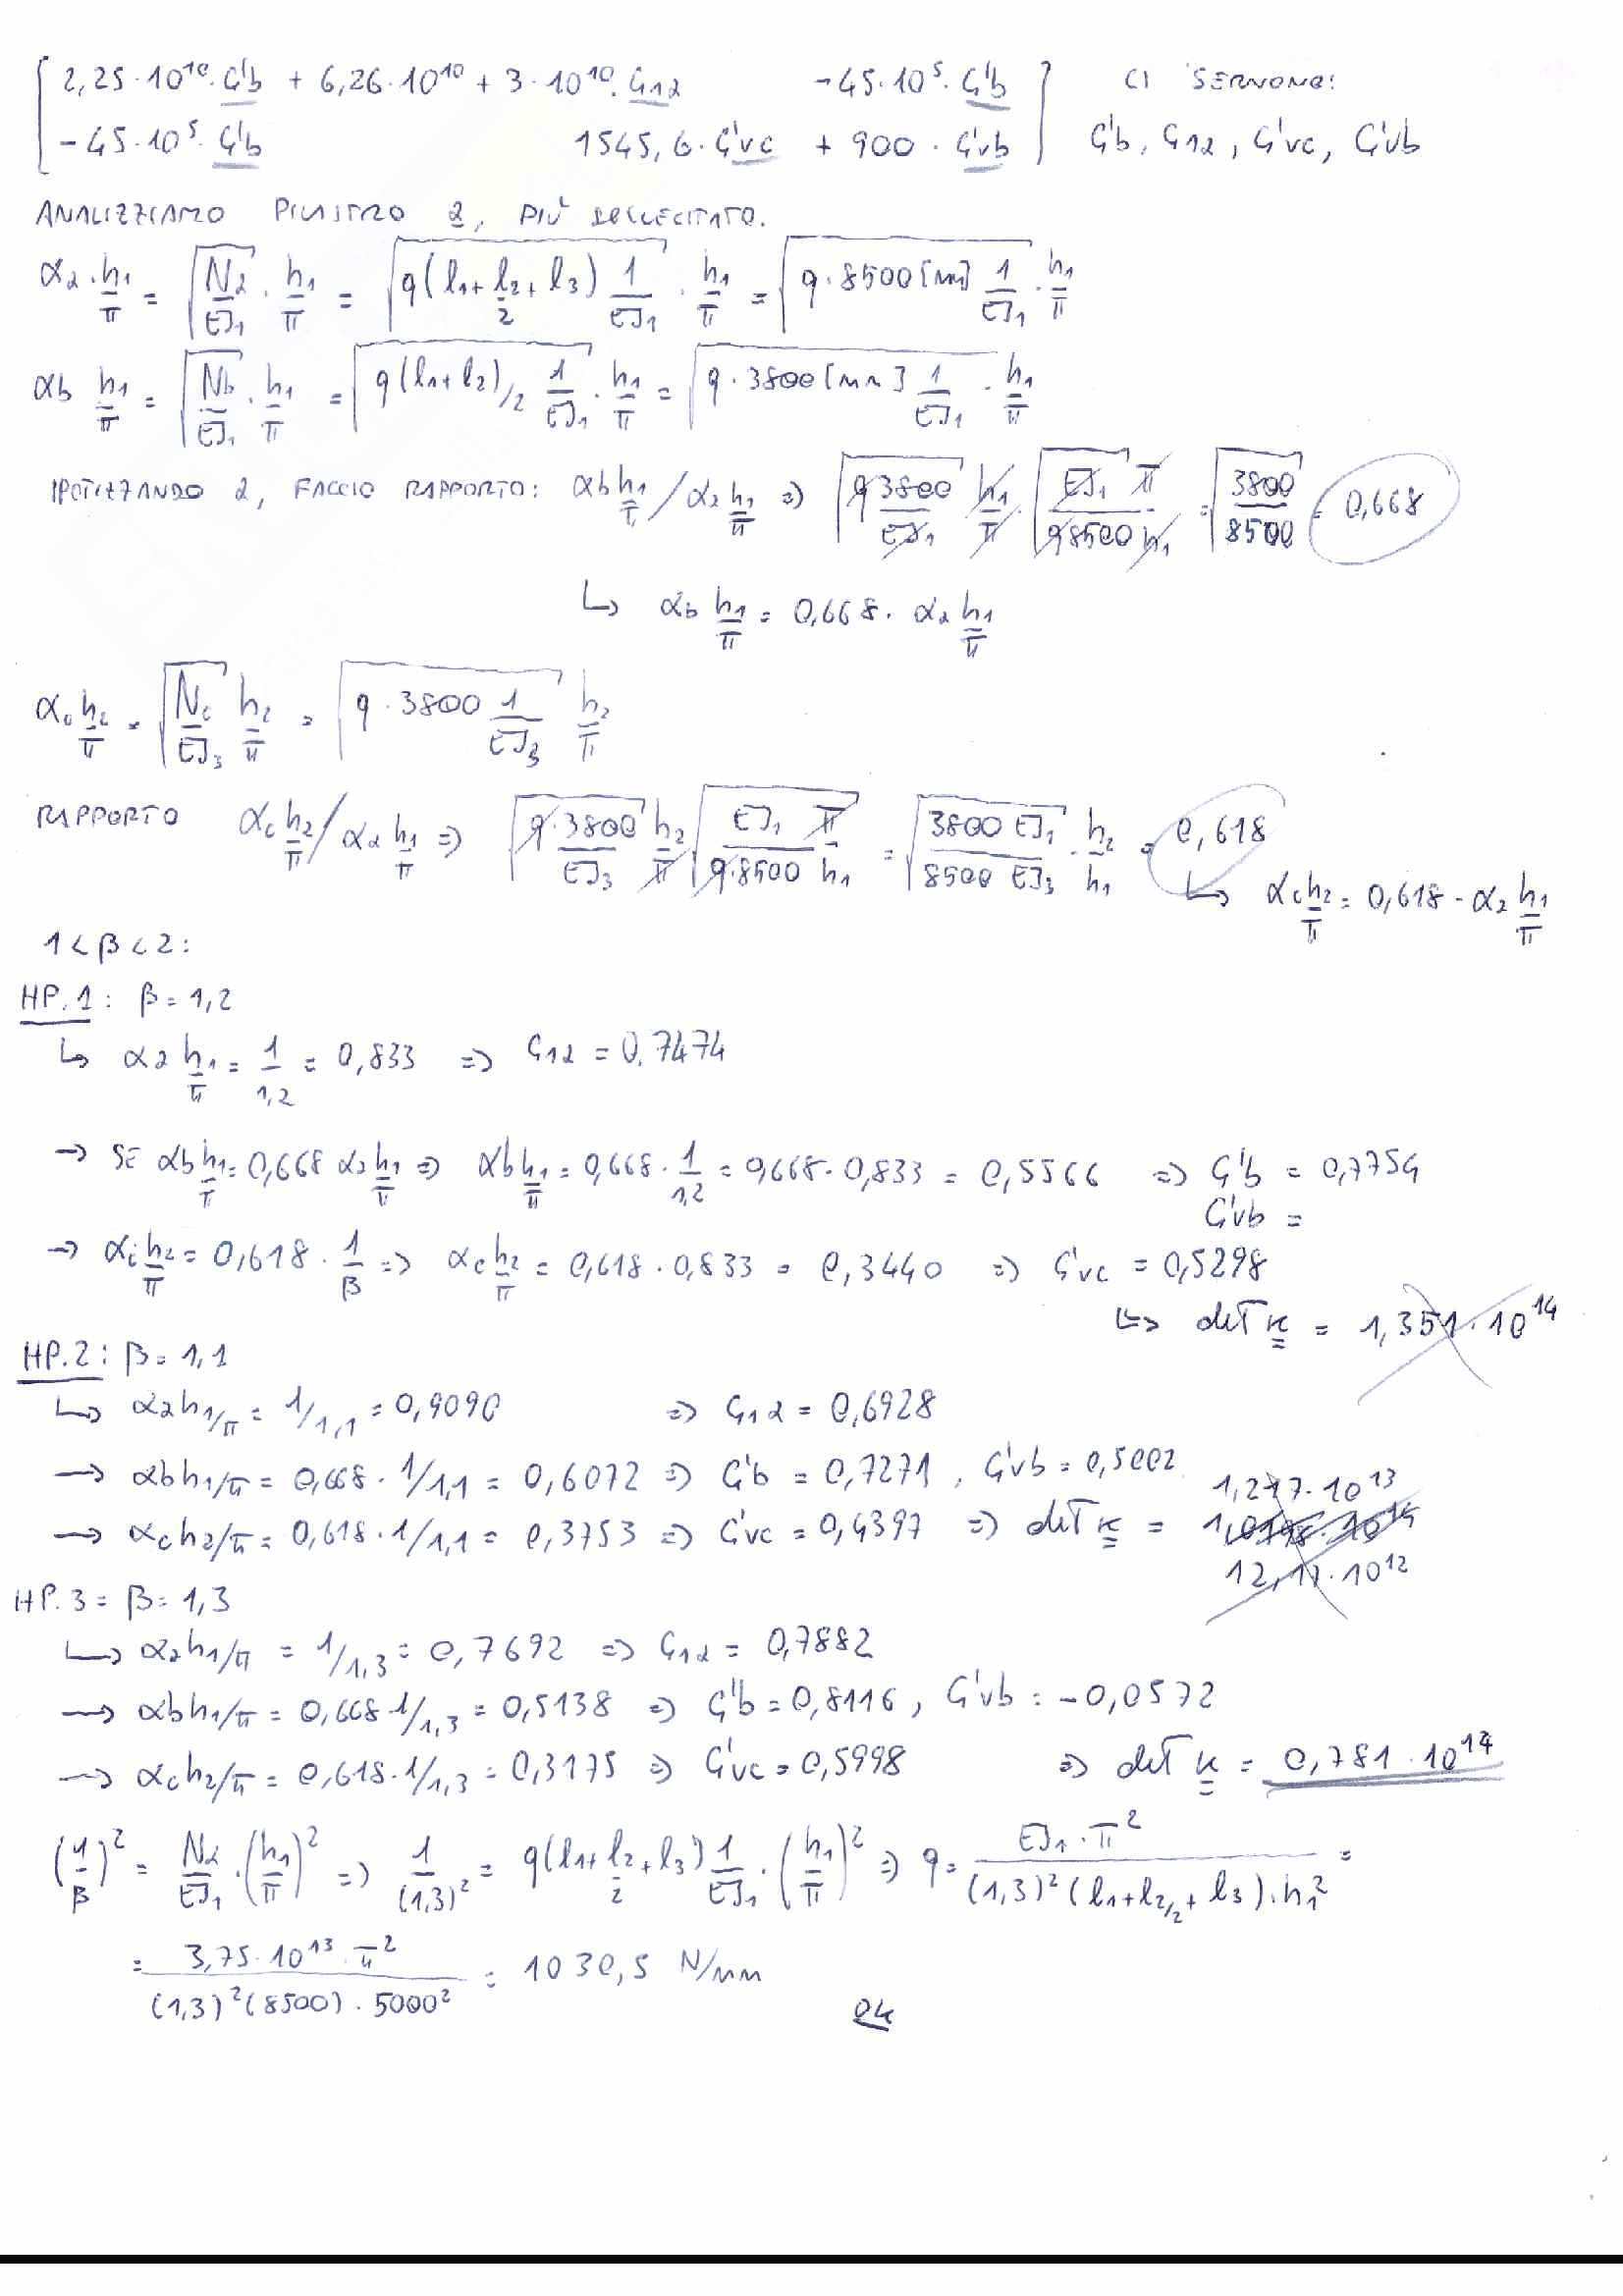 [ 2,25·10¹⁰·G'b + 6,26·10¹⁰ + 3·10¹⁰·G12   -45·10⁵·G'b ] CI SERVONO:
[ -45·10⁵·G'b   1545,6·G'vc + 900·G'vb ] G'b, G12, G'vc, G'vb
ANALIZZIAMO PILASTRO 2, PIÙ SOLLECITATO.
α2·h1/π = √(N2/EJ1)·h1/π = √(q(l1+l2/2+l3) 1/EJ1)·h1/π = √(q·8500[mm] 1/EJ1)·h1/π
αb h1/π = √(Nb/EJ1)·h1/π = √(q(l1+l2)/2 1/EJ1)·h1/π = √(q·3800[mm] 1/EJ1)·h1/π
IPOTIZZANDO 2, FACCIO RAPPORTO: αb h1/π / α2 h1/π => √(q3800/EJ1) h1/π · √(EJ1/q8500) π/h1 = √(3800/8500) = 0,668
↳ αb h1/π = 0,668·α2 h1/π
αc h2/π = √(Nc/EJ3) h2/π = √(q·3800 1/EJ3) h2/π
RAPPORTO αc h2/π / α2 h1/π => √(q·3800/EJ3) h2/π √(EJ1/q·8500) π/h1 = √(3800 EJ1/8500 EJ3)·h2/h1 = 0,618
↳ αc h2/π = 0,618·α2 h1/π
1<β<2:
HP.1: β=1,2
↳ α2 h1/π = 1/1,2 = 0,833 => G12 = 0,7474
→ SE αb h1/π = 0,668 α2 h1/π => αb h1/π = 0,668·1/1,2 = 0,668·0,833 = 0,5566 => G'b = 0,7754
G'vb =
→ αc h2/π = 0,618·1/β => αc h2/π = 0,618·0,833 = 0,3440 => G'vc = 0,5298
↳ det K = 1,351·10¹⁴
HP.2: β=1,1
↳ α2h1/π = 1/1,1 = 0,9090 => G12 = 0,6928
→ αbh1/π = 0,668·1/1,1 = 0,6072 => G'b = 0,7271, G'vb = 0,5002
1,217·10¹³
→ αch2/π = 0,618·1/1,1 = 0,3753 => G'vc = 0,4397 => det K =
12,17·10¹²
HP.3 = β=1,3
↳ α2h1/π = 1/1,3 = 0,7692 => G12 = 0,7882
→ αbh1/π = 0,668·1/1,3 = 0,5138 => G'b = 0,8116, G'vb = -0,0572
→ αch2/π = 0,618·1/1,3 = 0,3175 => G'vc = 0,5998 => det K = 0,781·10¹⁴
(1/β)² = N2/EJ1·(h1/π)² => 1/(1,3)² = q(l1+l2/2+l3) 1/EJ1·(h1/π)² => q = EJ1·π²/(1,3)²(l1+l2/2+l3)·h1² =
= 3,75·10¹³·π²/(1,3)²(8500)·5000² = 1030,5 N/mm
OK